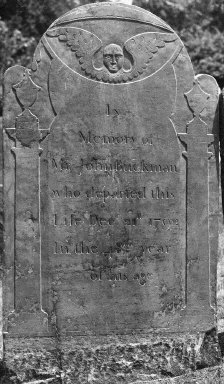 In
Memory of
Mr John Buckman
who departed this
Life Dec
In the year
of his age